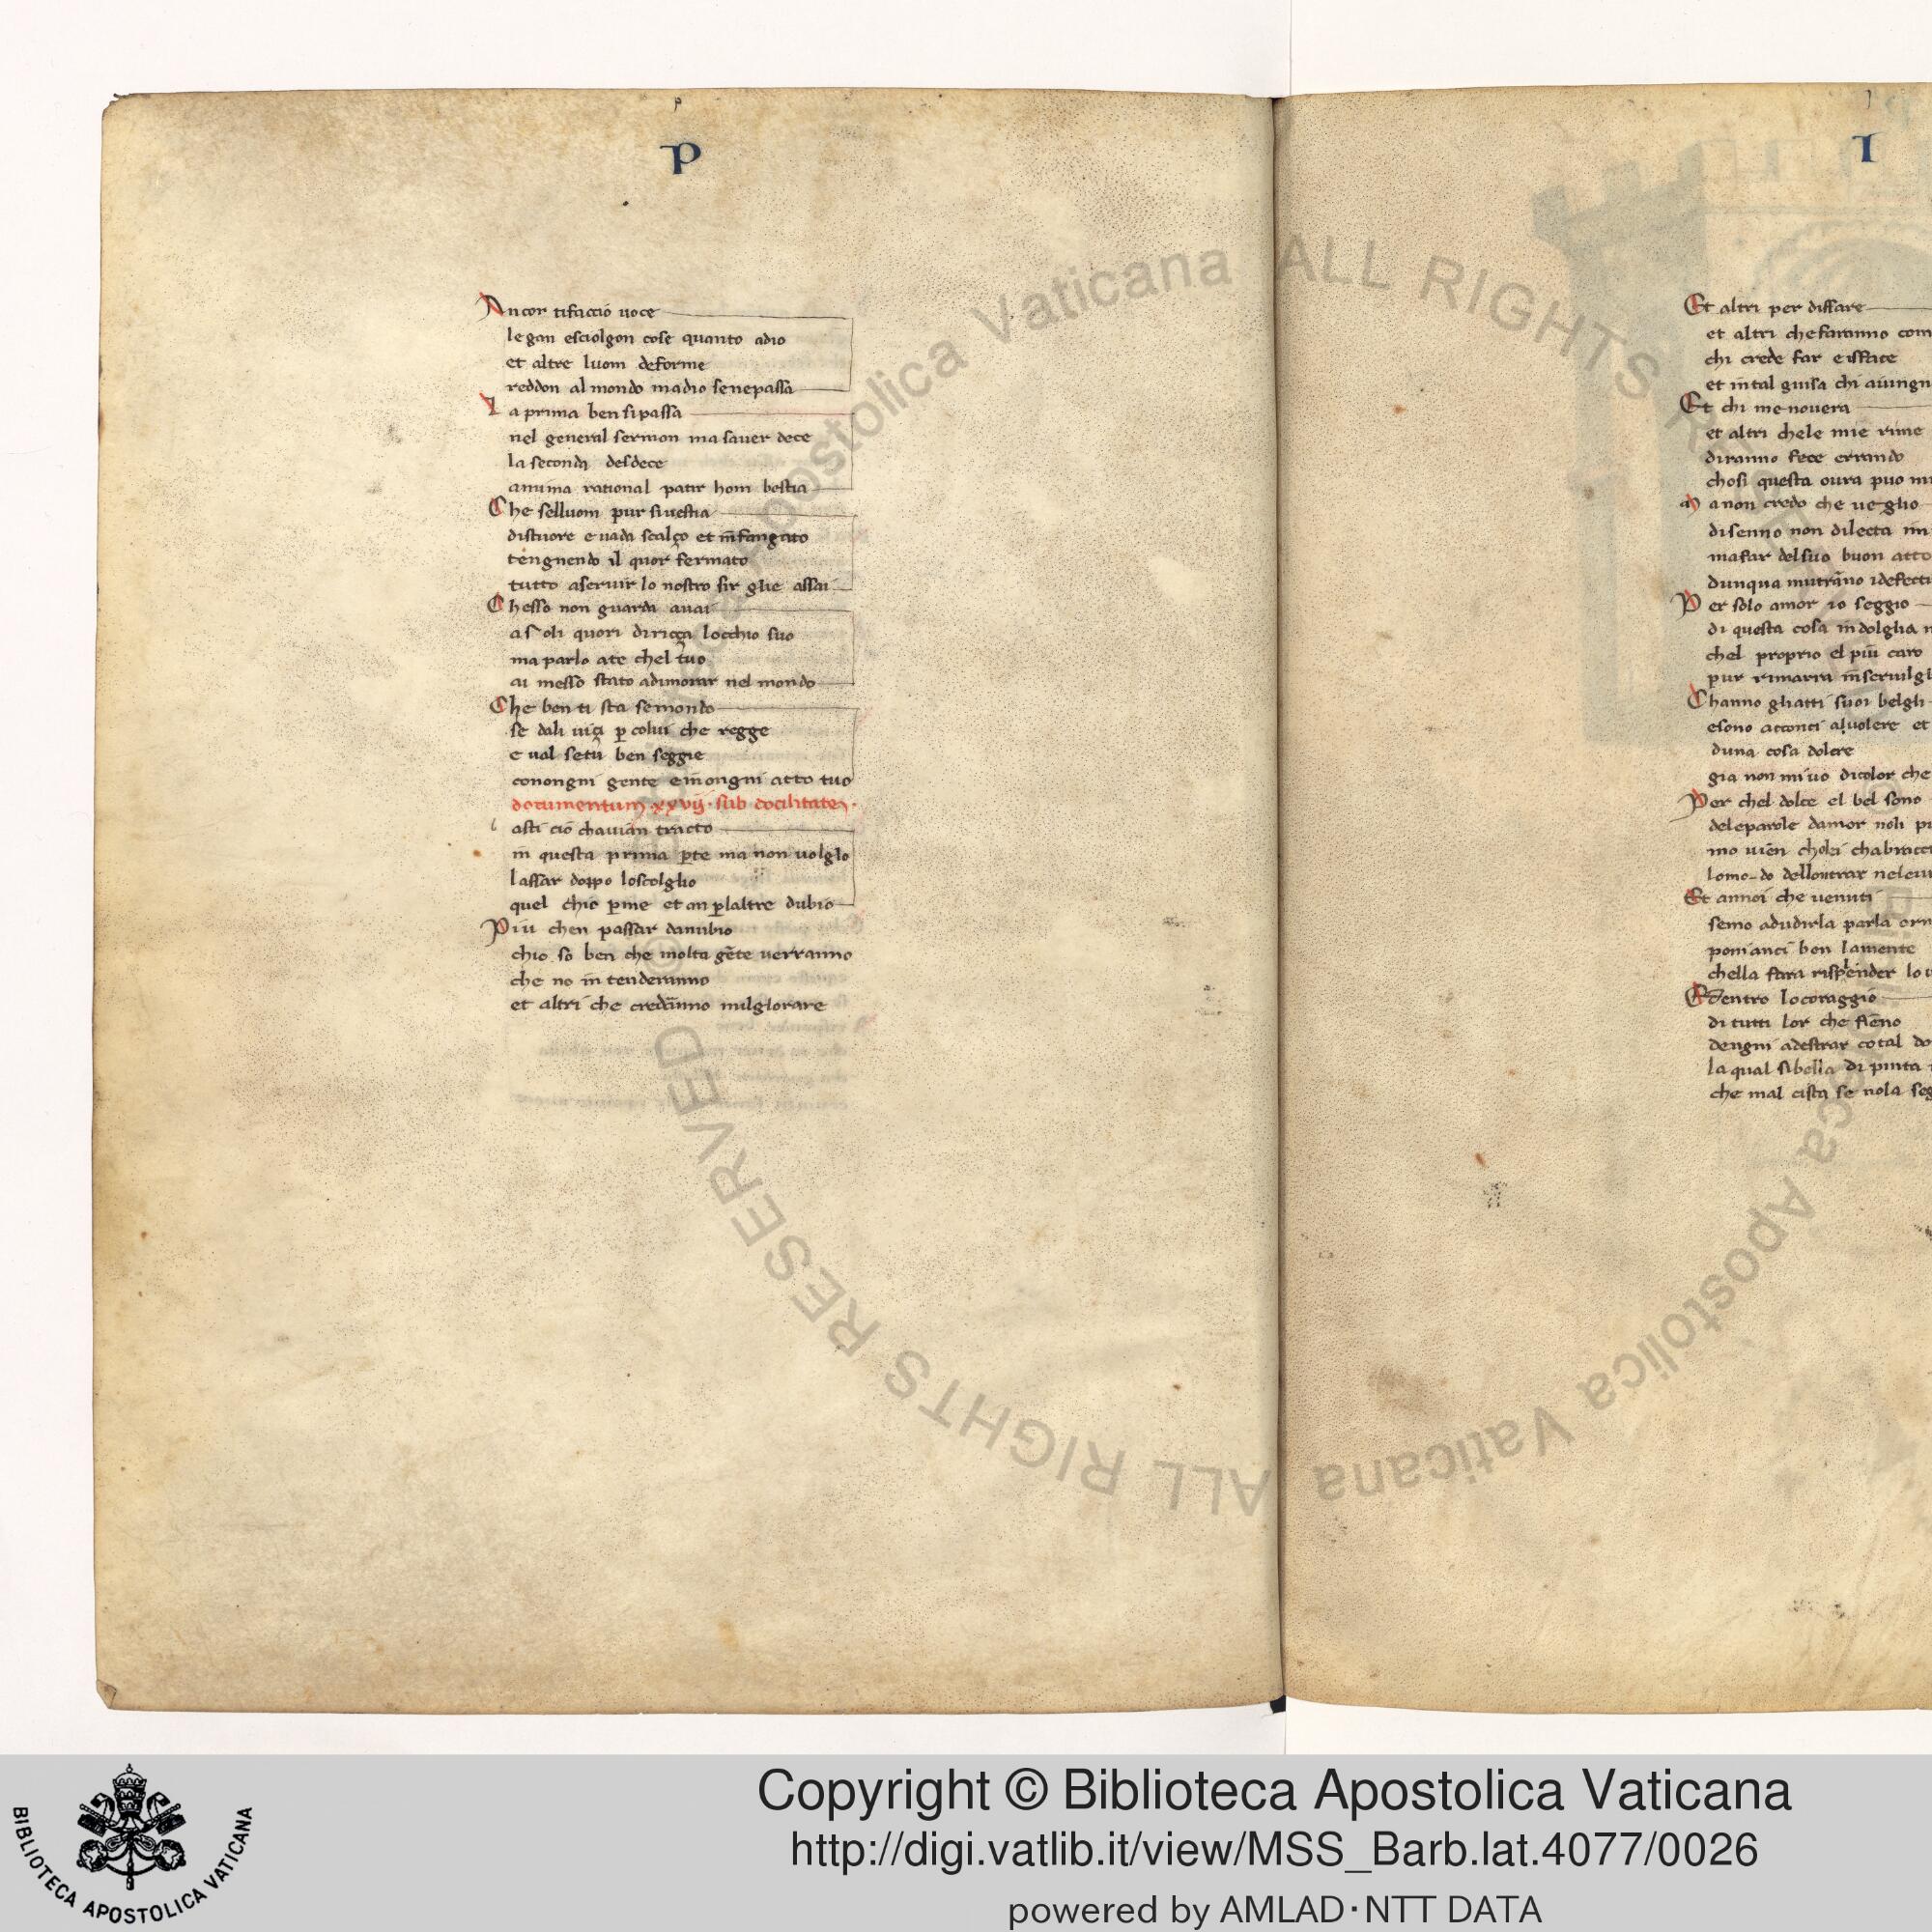 P
Ancor tifaccio uoce
legan esciolgon cose quanto adio
et altre luom deforme
reddon al mondo madio senepassa
La prima ben sipassa
nel general sermon ma sauer dece
la seconda desdece
anima rational patir hom bestia
Che selluom pur siuestia
distuore e uada scalço et infangato
tengnendo il quor fermato
tutto aseruir lo nostro sir glie assai
Chesso non guarda auai
asoli quori diriçça locchio suo
ma parlo ate chel tuo
ai messo stato adimorar nel mondo
Che ben ti sta semondo
se dali uiçi p colui che regge
e ual setu ben seggie
conongni gente e inongni atto tuo
documentum xxvij sub docilitate
l asti cio chauian tracto
in questa prima pte ma non uolglo
lassar doppo loscolglio
quel chio pme et an plaltre dubio
Piu chen passar danubio
chio so ben che molta gēte uerranno
che no in tenderanno
et altri che credāno milglorare
I
Et altri per disfare
et altri chefaranno com
chi crede far e isface
et in tal guisa chi aiungn
Et chi me nouera
et altri chele mie rime
diranno fece errando
chosi questa oura puo
Ma non credo che ueglio
disenno non dilecta
mafar delsuo buon atto
dunqua mutrāno idefecti
Per solo amor io seggio
di questa cosa indolglia
chel proprio el piu caro
pur rimarra inseruilgi
Channo gliatti suoi belgli
esono acconci aluolere et
duna cosa dolere
gia non mi uo dicolor che
Per chel dolce el bel sono
deleparole damor noli
mo uien cholei chabracci
lomo do dellontrar
Et annoi che uenuti
semo adudirla parla
ponianci ben lamente
chella fara rispender lo
E dentro locoraggio
di tutti lor che fieno
dengni adestrar cotal do
la qual sibella di pinta
che mal cista se nola seg
Biblioteca Apostolica Vaticana ALL RIGHTS RESERVED ©
Biblioteca Apostolica Vaticana ALL RIGHTS RESERVED ©
BIBLIOTECA APOSTOLICA VATICANA
Copyright © Biblioteca Apostolica Vaticana
http://digi.vatlib.it/view/MSS_Barb.lat.4077/0026
powered by AMLAD·NTT DATA